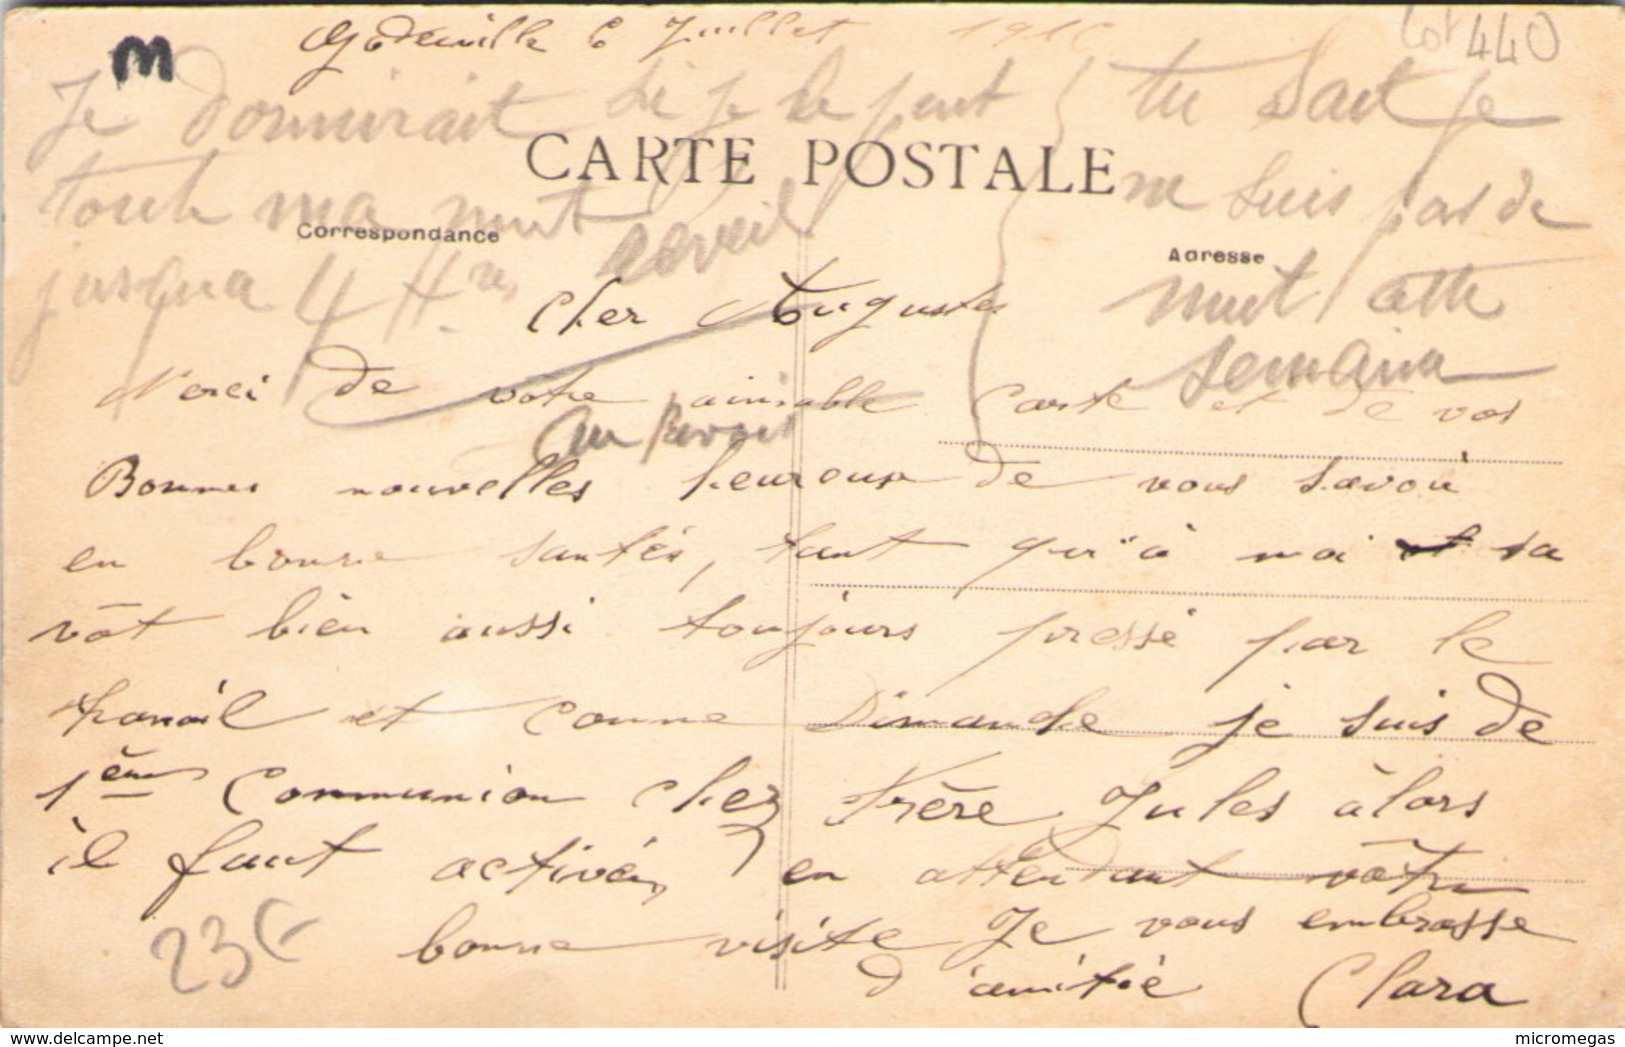 M
Godewille 6 Juillet 191
Lot 440
Je Dormirait si je le peut
toute ma nuit
jusqua 4 Hres
tu Sait je
ne suis pas de
nuit cette
semaine
CARTE POSTALE
Correspondance
Adresse
Au Revoir
Cher Auguste
Merci de vôtre aimable Carte et de vos
Bonnes nouvelles heureuse de vous savoir
en bonne santée, tant qu'à moi sa
vât bien aussi toujours pressé par le
travail et comme Dimanche je suis de
1ère Communion chez Frère Jules âlors
il faut activée, en attendant vôtre
bonne visite Je vous embrasse
d'amitié Clara
23 €
delcampe.net
micromegas